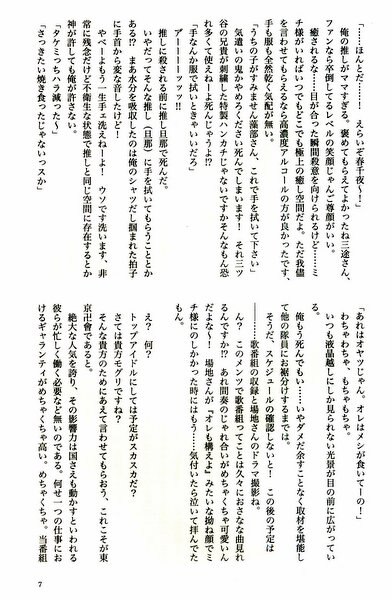 「……ほんとだ……！　えらいぞ春千夜〜！」
　俺の推しがママすぎる。褒めてもらえてよかったね三途さん、
ファンなら卒倒してるレベルの笑顔じゃんご尊顔がいい。
癒されるな……目が合った瞬間殺意を向けられるけど……ミ
チ様がいればいつでもどこでも極上の癒し空間だよ。ただ我儘
を言わせてもらえるなら高濃度アルコールの方が良かったです、
手も服も全然乾く気配が無い。
「うちの子がすみません藻部さん、これで手を拭いて下さい」
　気遣いの鬼かやめろください死んでしまいます！　それ三ツ
谷の兄貴が刺繍した特製ハンカチじゃないですかそんなもん恐
れ多くて使ねーよ死んじゃうよ!?
「手なんか服で拭いときゃいいだろ」
ア゛ーーーーーッッッ!!
推しに殺される前に推し旦那で死んだ。
　いやだってそんな推し（旦那）に手を拭いてもらうこととか
ある!?　まあ水分を吸収したのは俺のシャツだし掴まれた拍子
に手首から変な音したけど！
　やべーよもう一生手ェ洗えねーよ！　ウソです洗います、非
常に残念だけど不衛生な状態で推しと同じ空間に存在するとか
神が許しても俺が許さない。
「タケミっちハラ減ったぁ」
「さっきたい焼き食ったじゃないっスか」
「あれはオヤツじゃん、オレはメシが食いてーの！」
　わちゃわちゃ、もちゃもちゃ。
　いつも液晶越しにしか見られない光景が目の前に広がってい
る。
　俺もう死んでも……いやダメだ余すことなく取材を堪能し
て他の隊員にお裾分けするまでは。
　そうだ、スケジュールの確認しないと！　この後の予定は
――……歌番組の収録と場地さんのドラマ撮影ね。
　ん？　このメンツで歌番組ってことは久々におさなな曲見れ
るんですか!?　あれ間奏のじゃれ合いがめちゃくちゃ可愛いん
だよな〜！　場地さんが『オレも構えよ』みたいな拗ね顔でミ
チ様にのしかかった時にはもう……気付いたら泣いて拝んでた
もん。
　え？　何？
　トップアイドルにしては予定がスカスカだ？
　さては貴方モグリですね？
　そんな貴方のためにあえて言わせてもらおう、これこそが東
京卍會であると。
　絶大な人気を誇り、その影響力は国さえも動かすといわれる
彼らが忙しく働く必要など無いのである。何せ一つの仕事にお
けるギャランティがめちゃくちゃ高い。めちゃくちゃ。当番組
7